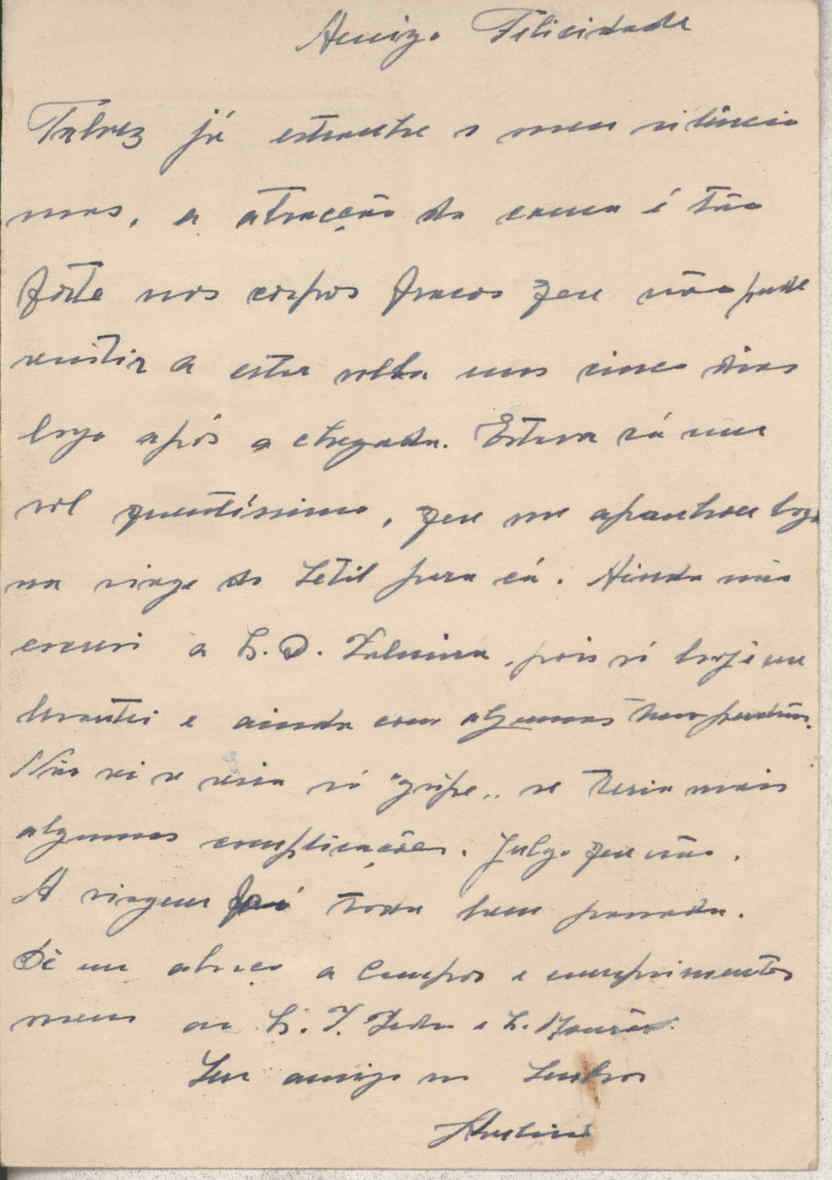 Amigo Felicidade
Talvez já estranhe o meu silêncio
mas, a atracção da cama é tão
forte nos corpos fracos que não pude
resistir a estar nella uns cinco dias
logo após a chegada. Estava cá um
sol quentíssimo, que me apanhou logo
na viage do Setil para cá. Ainda não
escrevi a S. D. Zulmira, pois só hoje me
levantei e ainda com algumas
Não sei se seria só "gripe" se teria mais
algumas complicações. Julgo que não.
A viagem foi toda bem passada.
Dê um abraço a Campos e cumprimentos
meus ao S. J. Pedro e S. Mourão.
Seu amigo no Senhor
Avelino